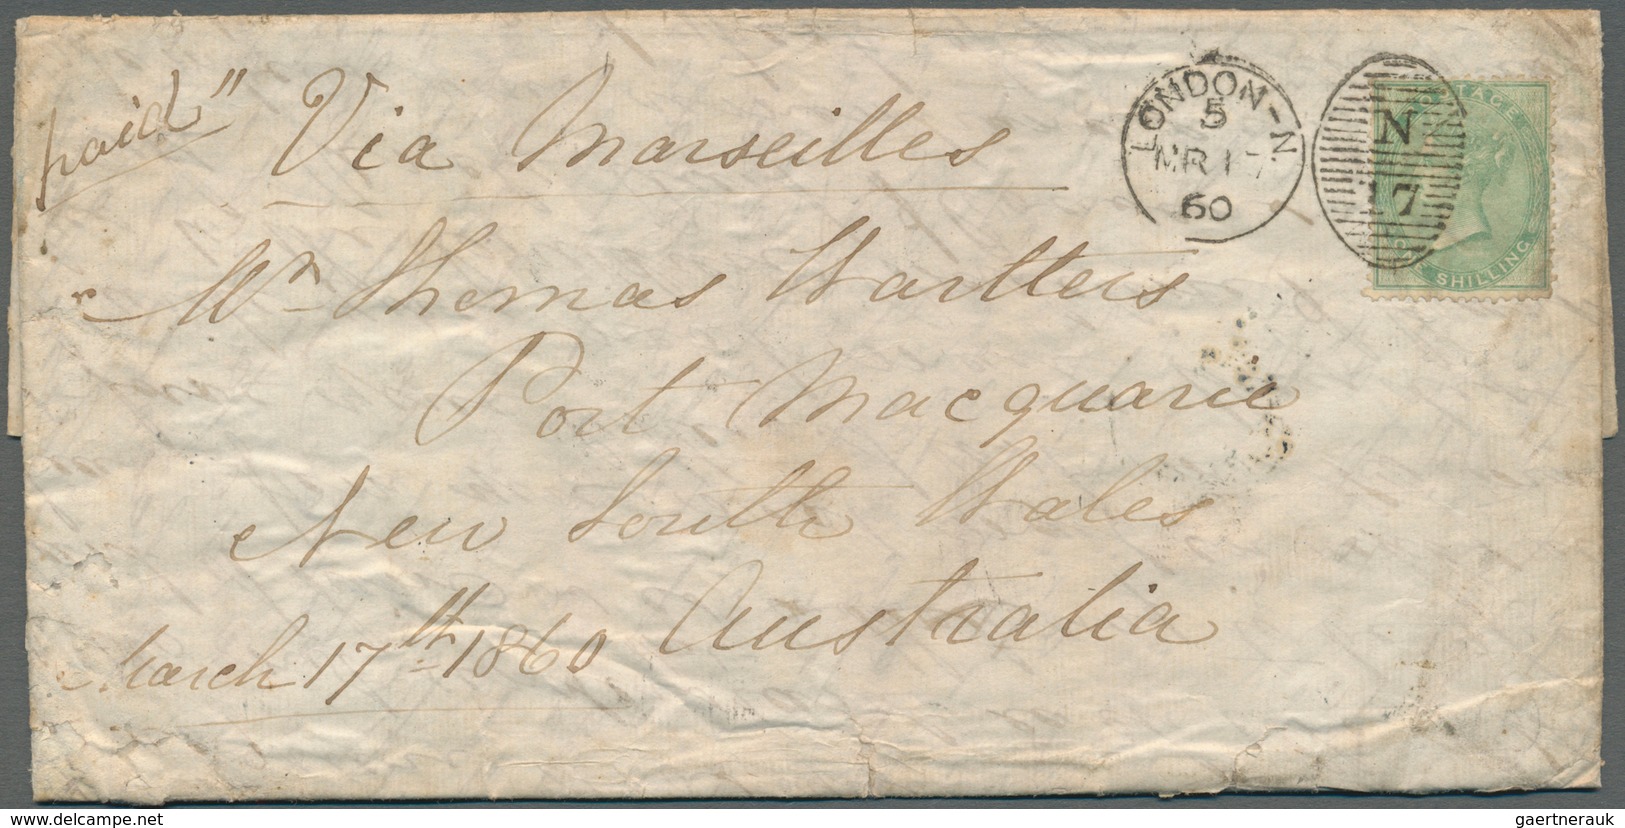 paid" Via Marseilles
LONDON-N.
5
MR 17
60
N
17
POSTAGE
ONE SHILLING
Mr Thomas Wartters
Port Macquarie
New South Wales
Australia
March 17th 1860
www.delcampe.net
gaertnerauk